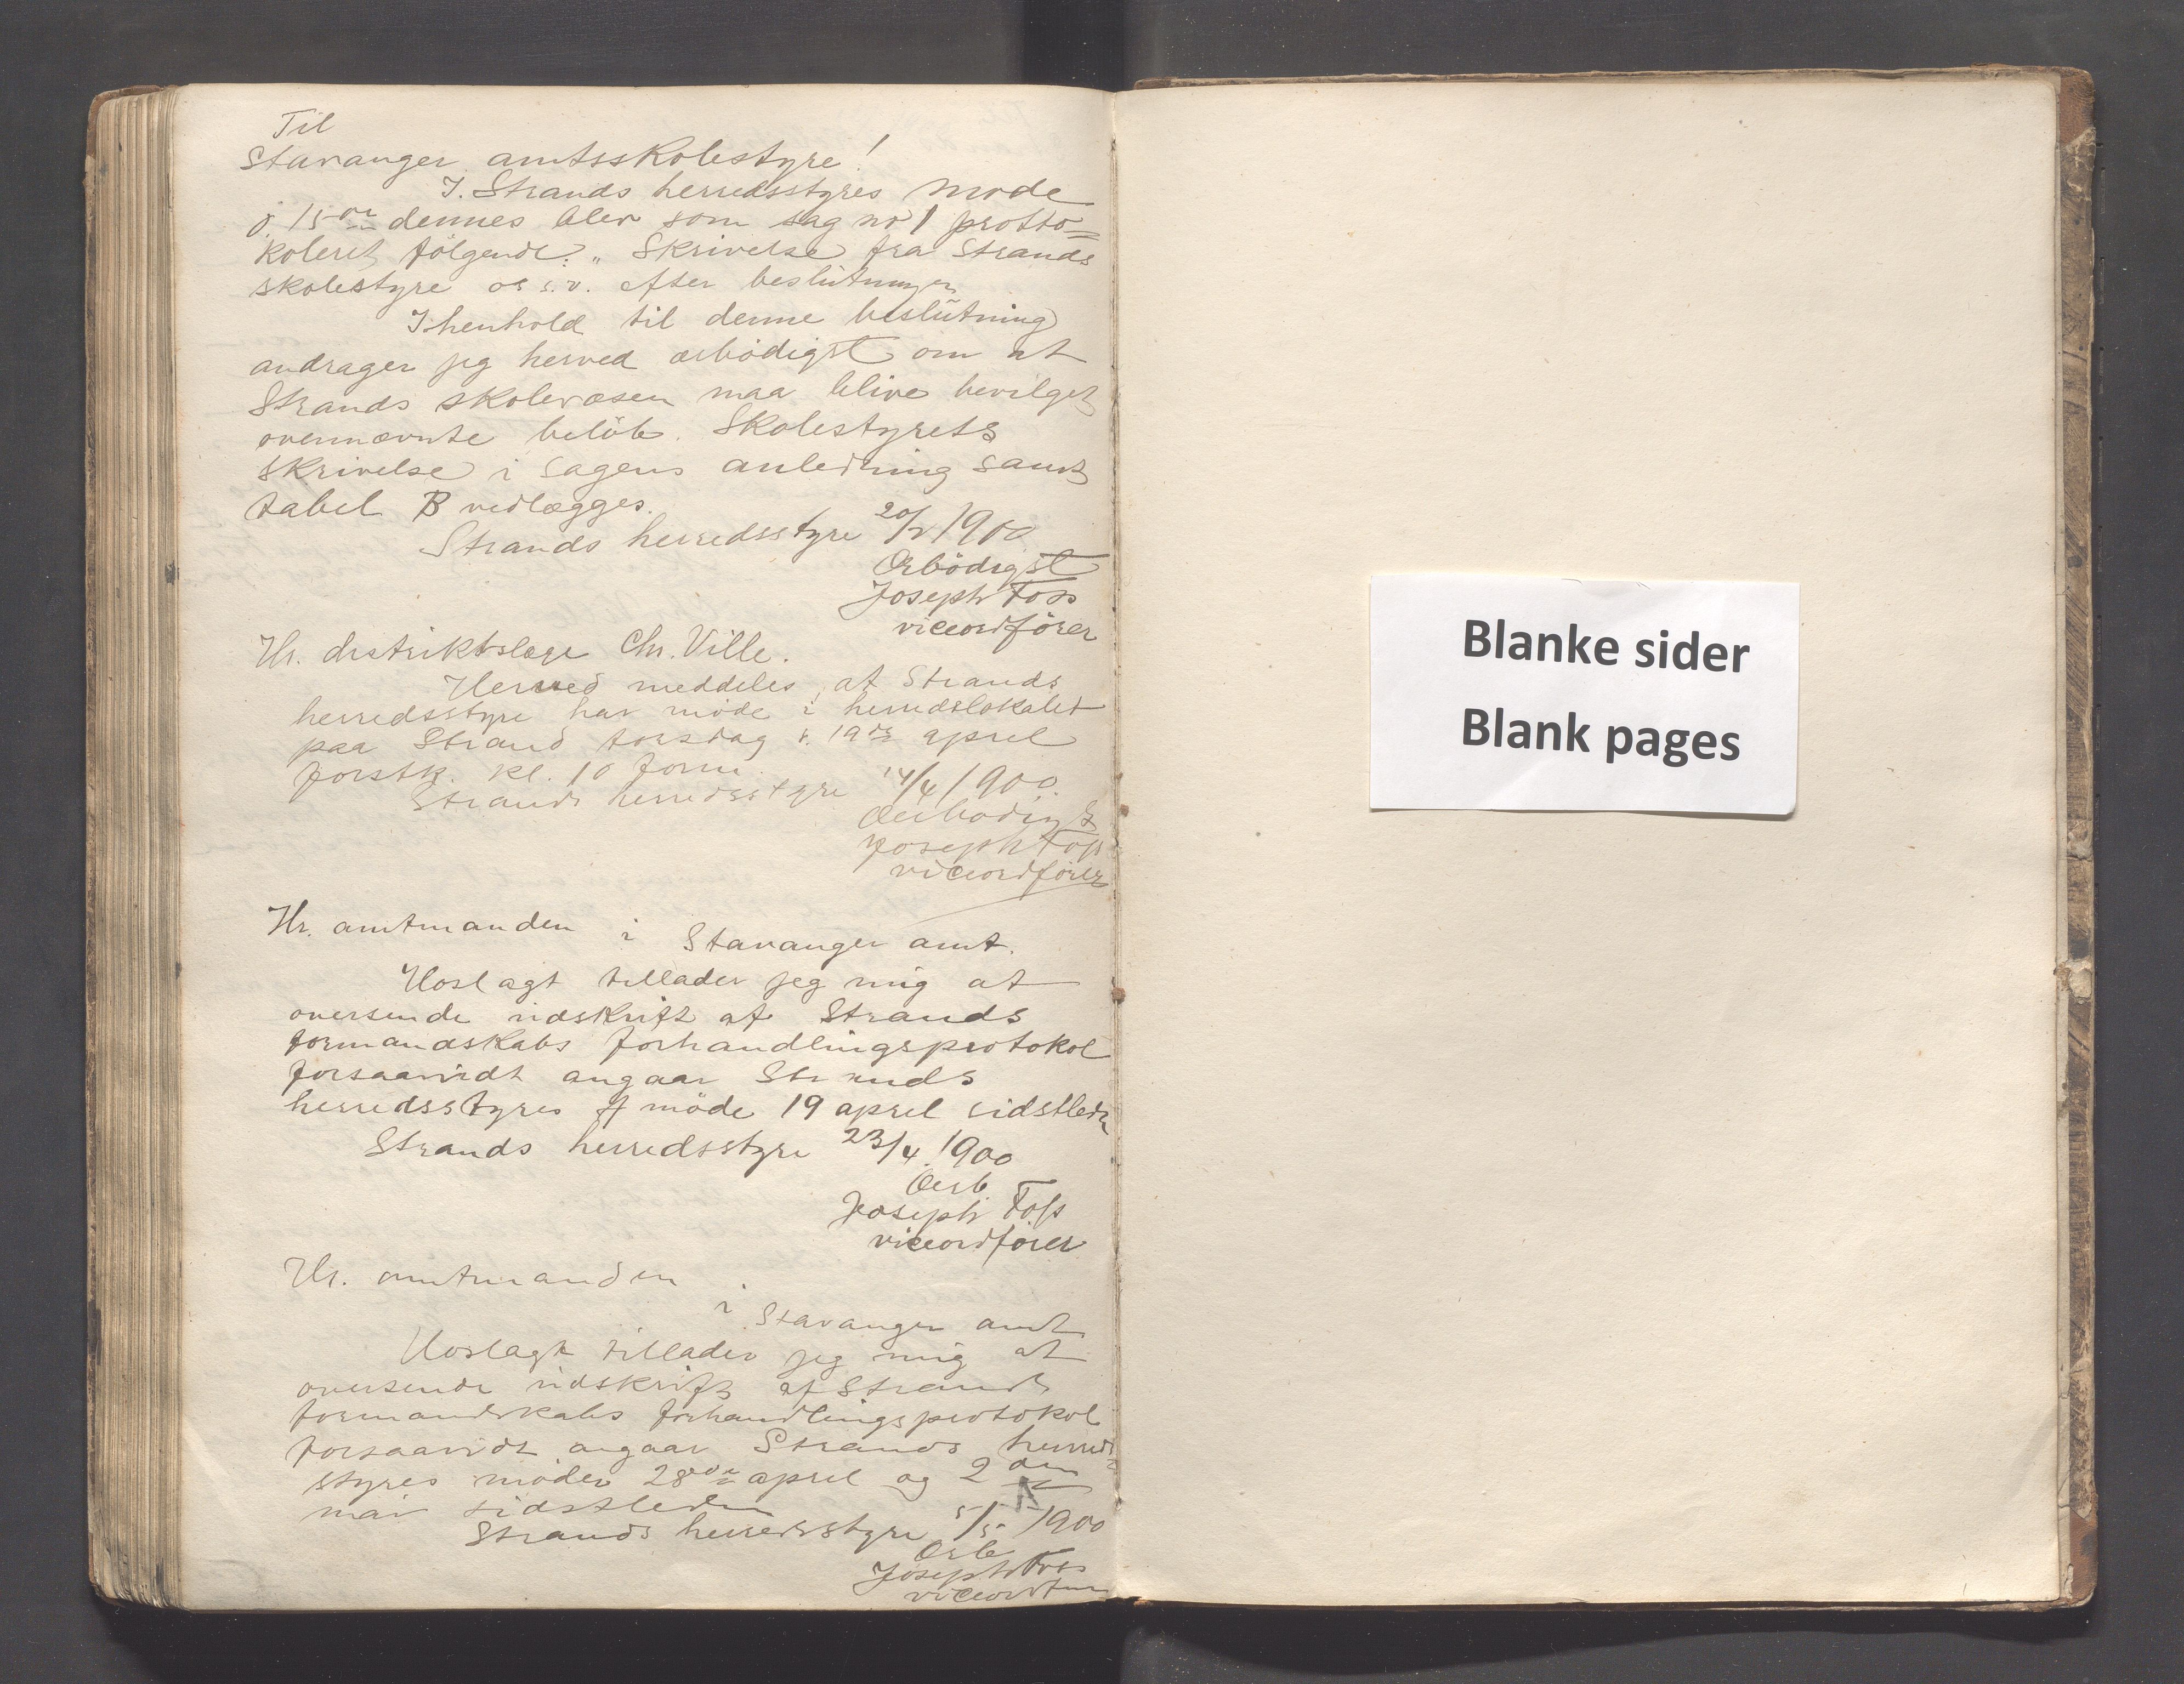 Til
Stavanger amtsskolestyre!
I. Strands herredsstyres möde
d. 15de dennes blev som sag no 1 protto=
koleret fölgende: „ Skrivelse fra Strands
skolestyre os s.v. efter beslutningen
I henhold til denne beslutning
andrager jeg herved ærbödigst om at
Strands skolevæsen maa blive bevilget
ovennævnte belöb. Skolestyrets
skrivelse i sagens anledning samt
tabel B vedlægges.
Strands herredsstyre 20/2 1900
Ærbödigst
Joseph Foss
viceordförer
Hr. distriktslæge Chr. Ville.
Herved meddeles, at Strands
herredsstyre har möde i herredslokalet
paa Strand torsdag d. 19de april
førstk. kl. 10 form.
Strands herredsstyre 14/4 1900.
Ærbödigst
Joseph Foss
viceordförer
Hr. amtmanden i Stavanger amt.
Hoslagt tillader jeg mig at
oversende udskrift af Strands
formandskabs forhandlingsprotokol
forsaavidt angaar Strands
herredsstyres möde 19 april sidstleden
Strands herredsstyre 23/4 1900
Ærb.
Joseph Foss
viceordförer
Hr. amtmanden
i Stavanger amt
Hoslagt tillader jeg mig at
oversende udskrift af Strands
formandskabs forhandlingsprotokol
forsaavidt angaar Strands herreds=
styres möder 28de april og 2den
mai sidstleden
Strands herredsstyre 5/5 1900
Ærb.
Joseph Foss
viceordförer
Blanke sider
Blank pages